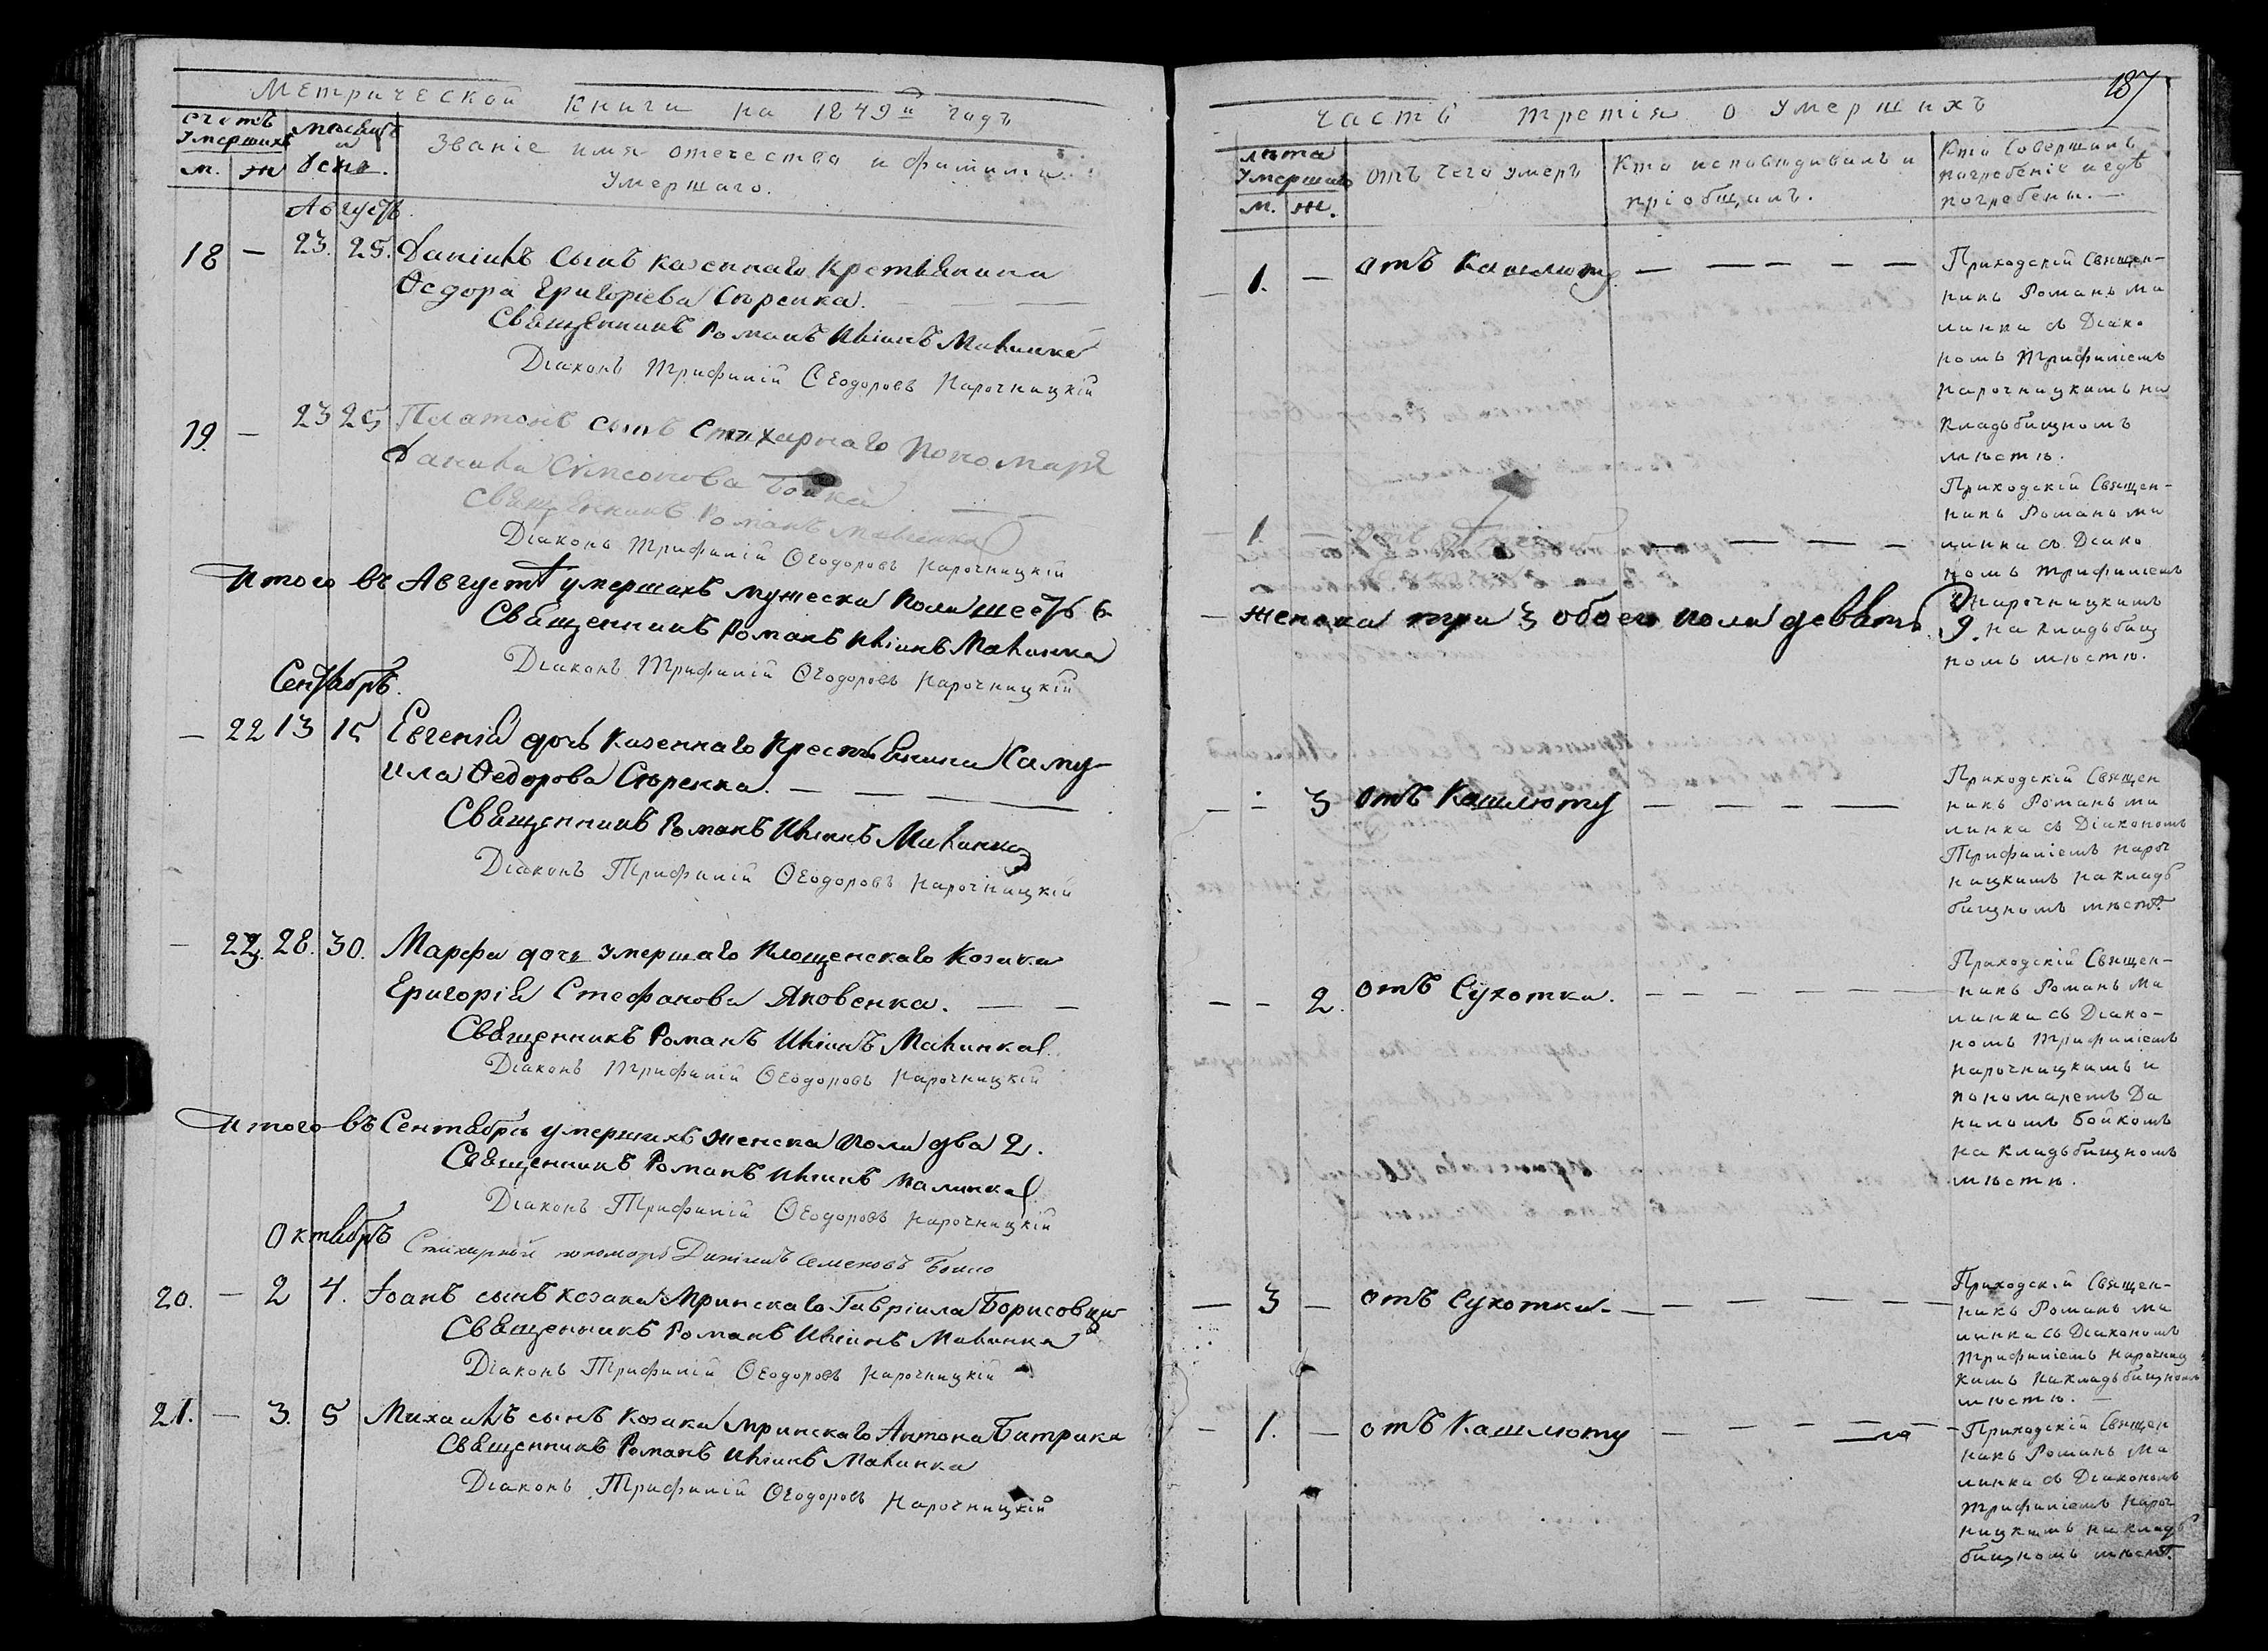 Метрической книги на 1849й годъ
счетъ умершихъ
м. ж
мѣсяцъ и день.
Званіе имя отечество и фамилія
умершаго.
Августъ.
18 — 23. 25. Даніилъ сынъ казеннаго крестьянина
Ѳедора Григоріева Сѣренка.
Священникъ Романъ Иліинъ Малинка
Діаконъ Трифилій Ѳеодоровъ Нарочницкій
19. — 23 25 Платонъ сынъ Стихарнаго Пономаря
Данила Симеонова Бойка
Священникъ Романъ Малинка
Діаконъ Трифилій Ѳеодоровъ Нарочницкій
Итого въ Августѣ умершихъ мужеска пола шесть 6
Священникъ Романъ Иліинъ Малинка
Діаконъ Трифилій Ѳеодоровъ Нарочницкій
Сентябрь.
— 22 13 15 Евгенія дочь казеннаго крестьянина Саму-
ила Ѳедорова Сѣренка. —
Священникъ Романъ Иліинъ Малинка
Діаконъ Трифилій Ѳеодоровъ Нарочницкій
— 23. 28. 30. Марфа дочь умершаго козака
Григорія Стефанова Яковенка. —
Священникъ Романъ Иліинъ Малинка
Діаконъ Трифилій Ѳеодоровъ Нарочницкій
Итого въ Сентябрѣ умершихъ женска пола два 2.
Священникъ Романъ Иліинъ Малинка
Діаконъ Трифилій Ѳеодоровъ Нарочницкій
Октябрь
Стихарный пономарь Даніилъ Семеновъ Бойко
20. — 2 4. Іоанъ сынъ козака Мринскаго Гавріила Борисовца
Священникъ Романъ Иліинъ Малинка
Діаконъ Трифилій Ѳеодоровъ Нарочницкій
21. — 3. 5 Михаилъ сынъ козака Мринскаго Антона Батрака
Священникъ Романъ Иліинъ Малинка
Діаконъ Трифилій Ѳеодоровъ Нарочницкій
187
часть третія о умершихъ
лѣта умершихъ
м. ж.
отъ чего умеръ
Кто исповѣдивалъ и
пріобщалъ.
Кто Совершалъ
погребеніе и гдѣ
погребены. —
1. — отъ Кашлюту —
Приходскій Священ-
никъ Романъ Ма
линка съ Діако
номъ Трифиліемъ
Нарочницкимъ на
кладбищномъ
мѣстѣ.
1 —
Приходскій Священ-
никъ Романъ Ма
линка съ Діако
номъ Трифиліемъ
Нарочницкимъ
на кладбищ
номъ мѣстѣ.
женска три 3 обоего пола девять 9.
3 отъ Кашлюту —
Приходскій Священ
никъ Романъ Ма
линка съ Діакономъ
Трифиліемъ Нароч
ницкимъ на кладъ
бищномъ мѣстѣ.
— — 2. отъ Сухотки. —
Приходскій Священ-
никъ Романъ Ма
линка съ Діако-
номъ Трифиліемъ
Нарочницкимъ и
пономаремъ Да
ниломъ Бойкомъ
на кладьбищномъ
мѣстѣ.
— 3 — отъ Сухотки. —
Приходскій Священ-
никъ Романъ Ма
линка съ Діакономъ
Трифиліемъ Нарочниц
кимъ на кладьбищномъ
мѣстѣ. —
— 1. — отъ Кашлюту —
Приходскій Священ
никъ Романъ Ма
линка съ Діакономъ
Трифиліемъ Нароч
ницкимъ на кладъ
бищномъ мѣстѣ.